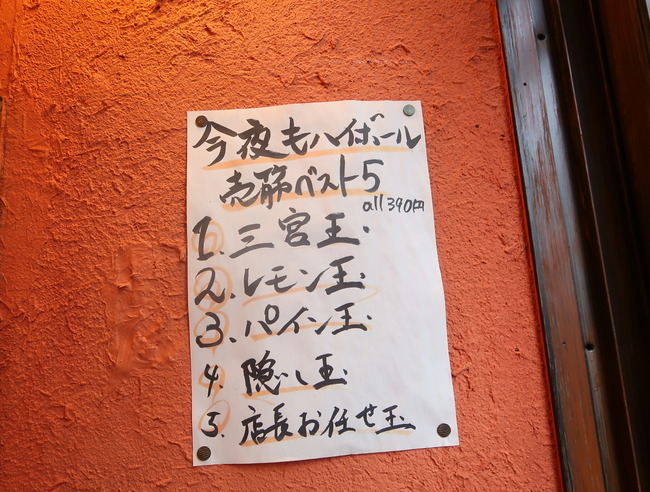 今夜もハイボール
売筋ベスト5
all 390円
1. 三宮玉
2. レモン玉
3. パイン玉
4. 隠し玉
5. 店長お任せ玉